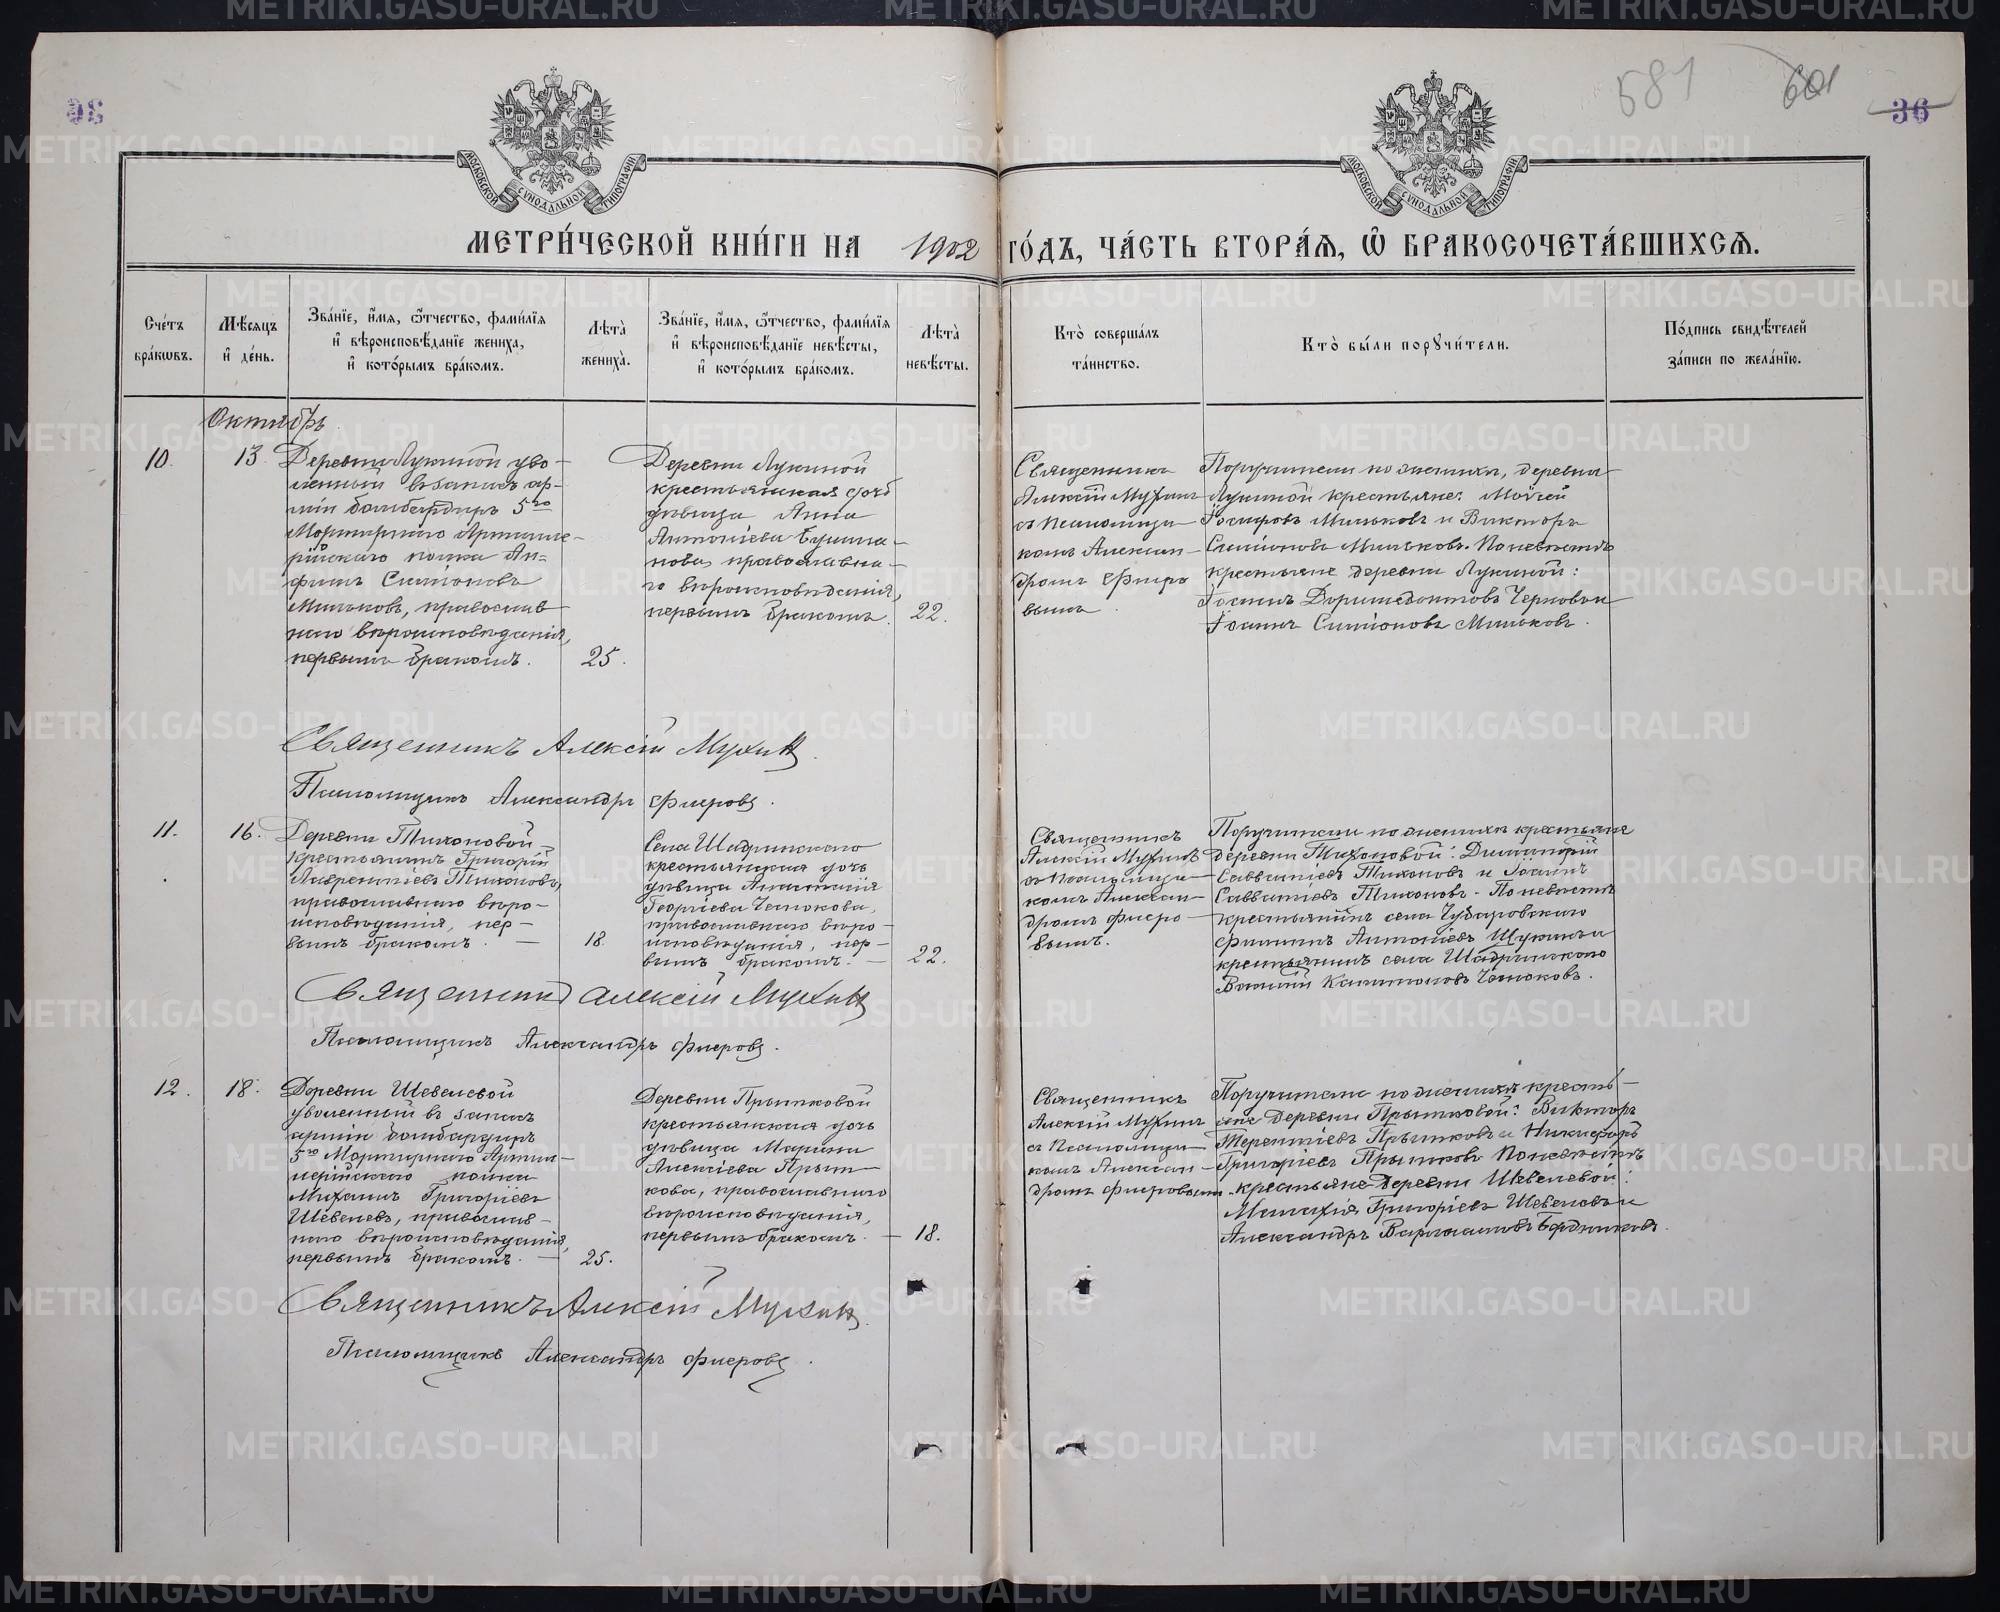 36
581
601
36
МОСКОВСКОЙ СѴНОДАЛЬНОЙ ТИПОГРАФІИ
МОСКОВСКОЙ СѴНОДАЛЬНОЙ ТИПОГРАФІИ
МЕТРИ́ЧЕСКОЙ КНИ́ГИ НА 1902 ГО́ДЪ, ЧА́СТЬ ВТОРА́Я, Ѡ БРАКОСОЧЕТА́ВШИХСЯ.
Сче́тъ
бра́кѡвъ.
Мѣ́сяцъ
и҆ де́нь.
Зва́нїе, и҆́мя, ѻ҆́тчество, фами́лїя
и҆ вѣроисповѣ́данїе жениха̀,
и҆ кото́рымъ бра́комъ.
Лѣ́та̀
жениха̀.
Зва́нїе, и҆́мя, ѻ҆́тчество, фами́лїя
и҆ вѣроисповѣ́данїе невѣ́сты,
и҆ кото́рымъ бра́комъ.
Лѣ́та̀
невѣ́сты.
Кто̀ соверша́лъ
та́инство.
Кто̀ бы́ли порꙋчи́тели.
По́дпись свидѣ́телей
за́писи по жела́нїю.
Октябрь
10.
13.
Деревни Лукиной уво-
ленный въ запасъ ар-
міи бомбардиръ 5го
Мортирнаго Артилле-
рійскаго полка Ан-
фимъ Симіоновъ
Мильковъ, православ
наго вѣроисповѣданія,
первымъ бракомъ.
25.
Деревни Лукиной
крестьянская дочь
дѣвица Анна
Антоніева
православна-
го вѣроисповѣданія,
первымъ бракомъ.
22.
Священникъ
Алексій Мухинъ
съ Псаломщи-
комъ Алексан-
дромъ Флеро
вымъ.
Поручители по женихѣ, деревни
Лукиной крестьяне: Моѵсей
Іосифовъ Мильковъ и Викторъ
Симіоновъ Мильковъ. По невѣстѣ
крестьяне деревни Лукиной:
Іоаннъ Симіоновъ Мильковъ.
Священникъ Алексій Мухинъ
Псаломщикъ Александръ Флеровъ.
11.
16.
Деревни Тихоновой
крестьянинъ Григорій
Лаврентіевъ Тихоновъ,
православнаго вѣро-
исповѣданія, пер-
вымъ бракомъ. —
18.
Села Шадринскаго
крестьянская дочь
дѣвица Анастасія
Георгіева Чесnокова,
православнаго вѣро-
исповѣданія, пер-
вымъ бракомъ. —
22.
Священникъ
Алексій Мухинъ
съ Псаломщи-
комъ Алексан-
дромъ Флеро-
вымъ.
Поручители по женихѣ крестьяне
деревни Тихоновой: Димитрій
Савватіевъ Тихоновъ и Іоаннъ
Савватіевъ Тихоновъ. По невѣстѣ
крестьянинъ села Чубаровскаго
Филиппъ Антоніевъ Щукинъ и
крестьянинъ села Шадринскаго
Василій Капитоновъ Чесноковъ.
Священникъ Алексій Мухинъ
Псаломщикъ Александръ Флеровъ.
12.
18.
Деревни Шевелевой
уволенный въ запасъ
арміи бомбардиръ
5го Мортирнаго Артил-
лерійскаго полка
Михаилъ Григоріевъ
Шевелевъ, православ-
наго вѣроисповѣданія,
первымъ бракомъ. —
25.
Деревни Прытковой
крестьянская дочь
дѣвица Марина
Алексіева Прыт-
кова, православнаго
вѣроисповѣданія,
первымъ бракомъ. —
18.
Священникъ
Алексій Мухинъ
съ Псаломщи-
комъ Алексан-
дромъ Флеровымъ.
Поручители по женихѣ кресть-
яне деревни Прытковой: Викторъ
Терентіевъ Прытковъ и Никифоръ
Григоріевъ Прытковъ. По невѣстѣ
крестьяне деревни Шевелевой:
Малахія Григоріевъ Шевелевъ и
Александръ Варлаамовъ Бердниковъ.
Священникъ Алексій Мухинъ
Псаломщикъ Александръ Флеровъ.
METRIKI.GASO-URAL.RU